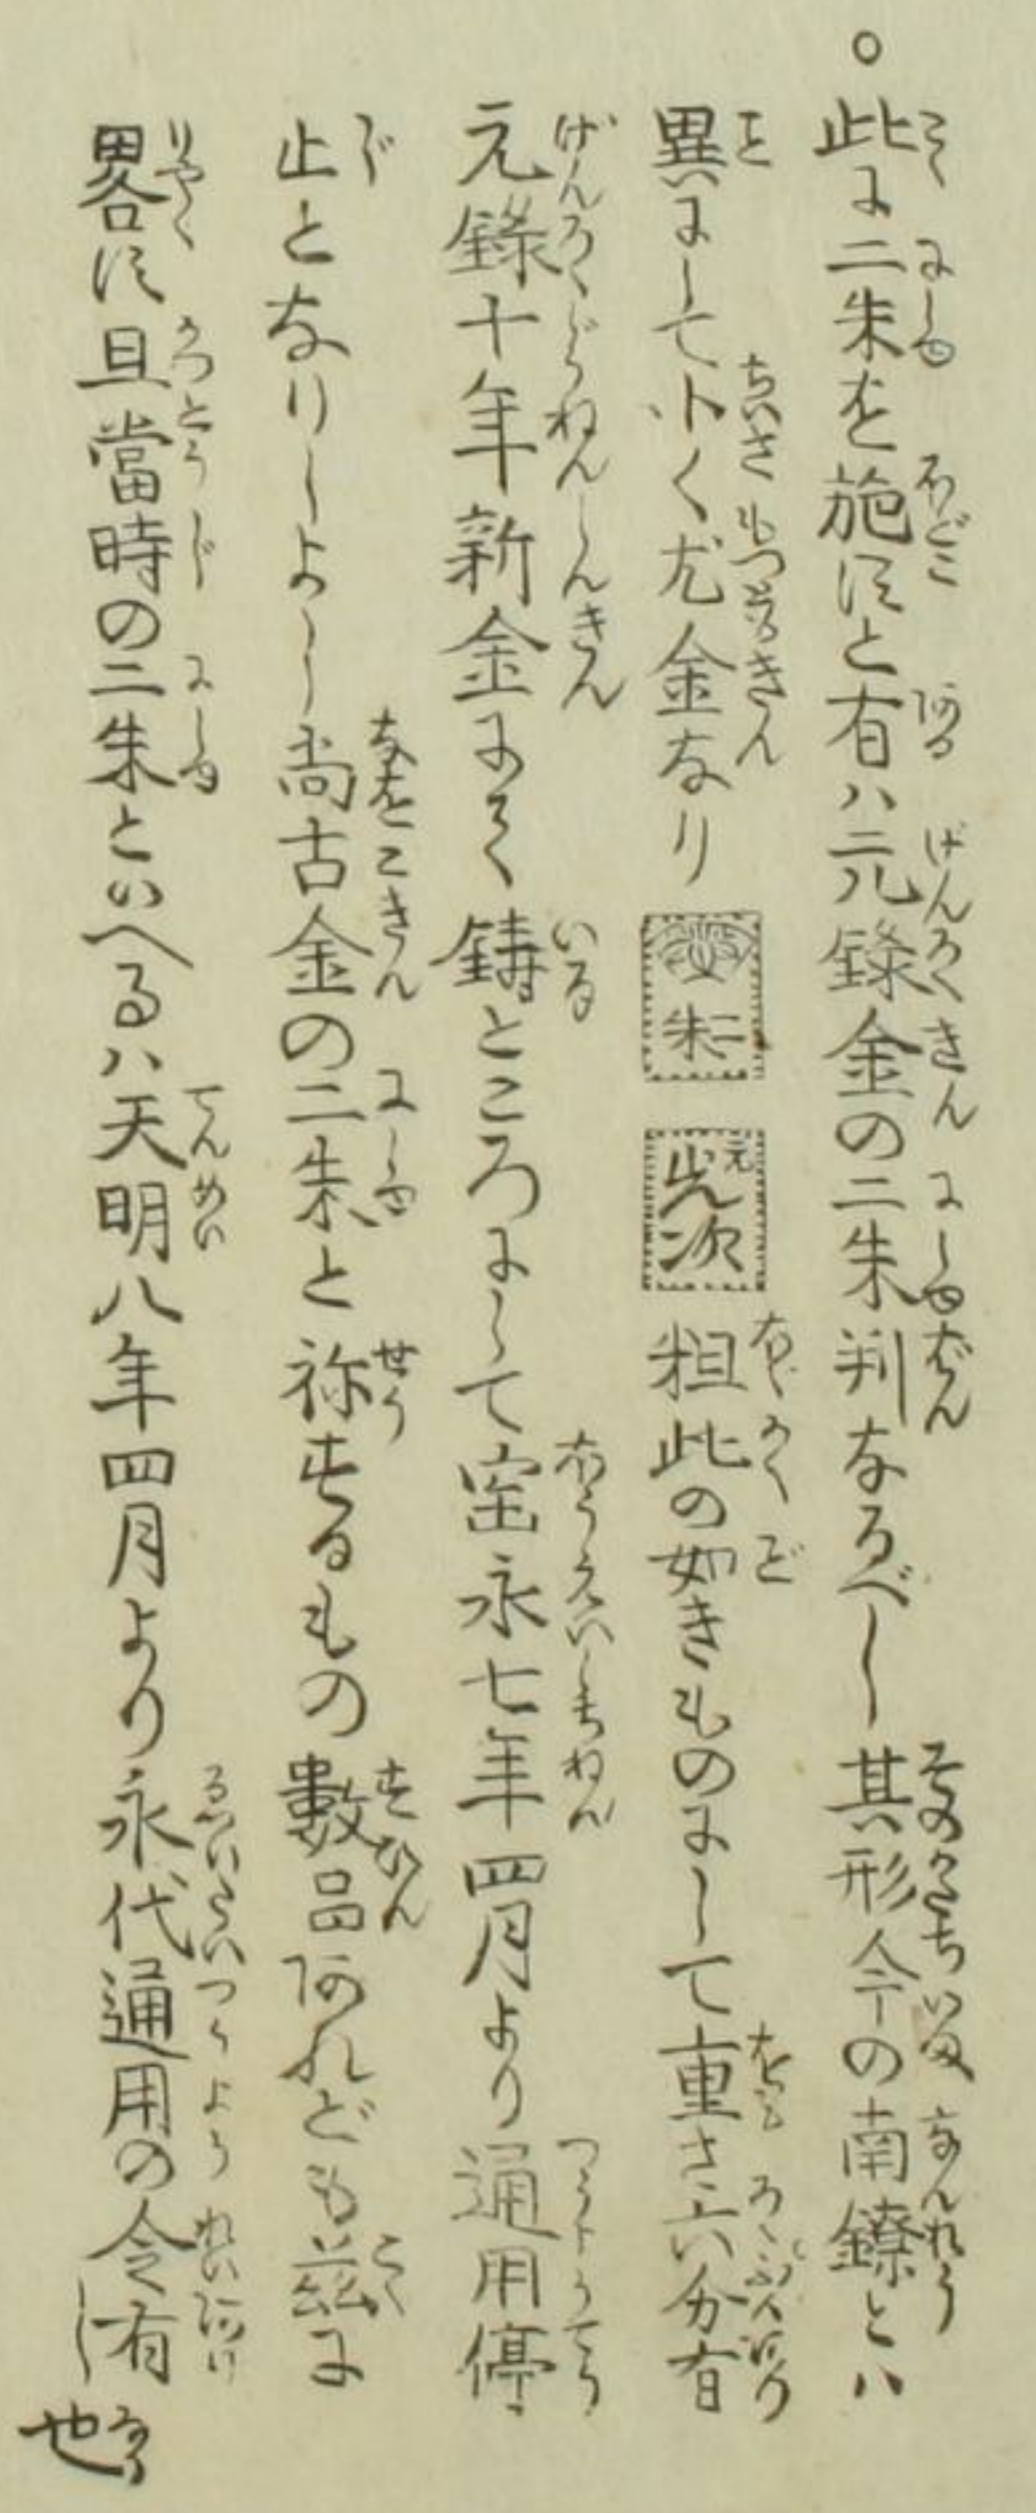 ○此に二朱を施すと有ハ元錄金の二朱判なるべし其形今の南鐐とハ
異にして小く尤金なり 二朱 元 光次 粗此の如きものにして重さ六分有
元錄十年新金にて鋳ところにして宝永七年四月より通用停
止となりしよし尚古金の二朱と称するもの數品あれども茲に
畧す且當時の二朱といへるハ天明八年四月より永代通用の令有し也